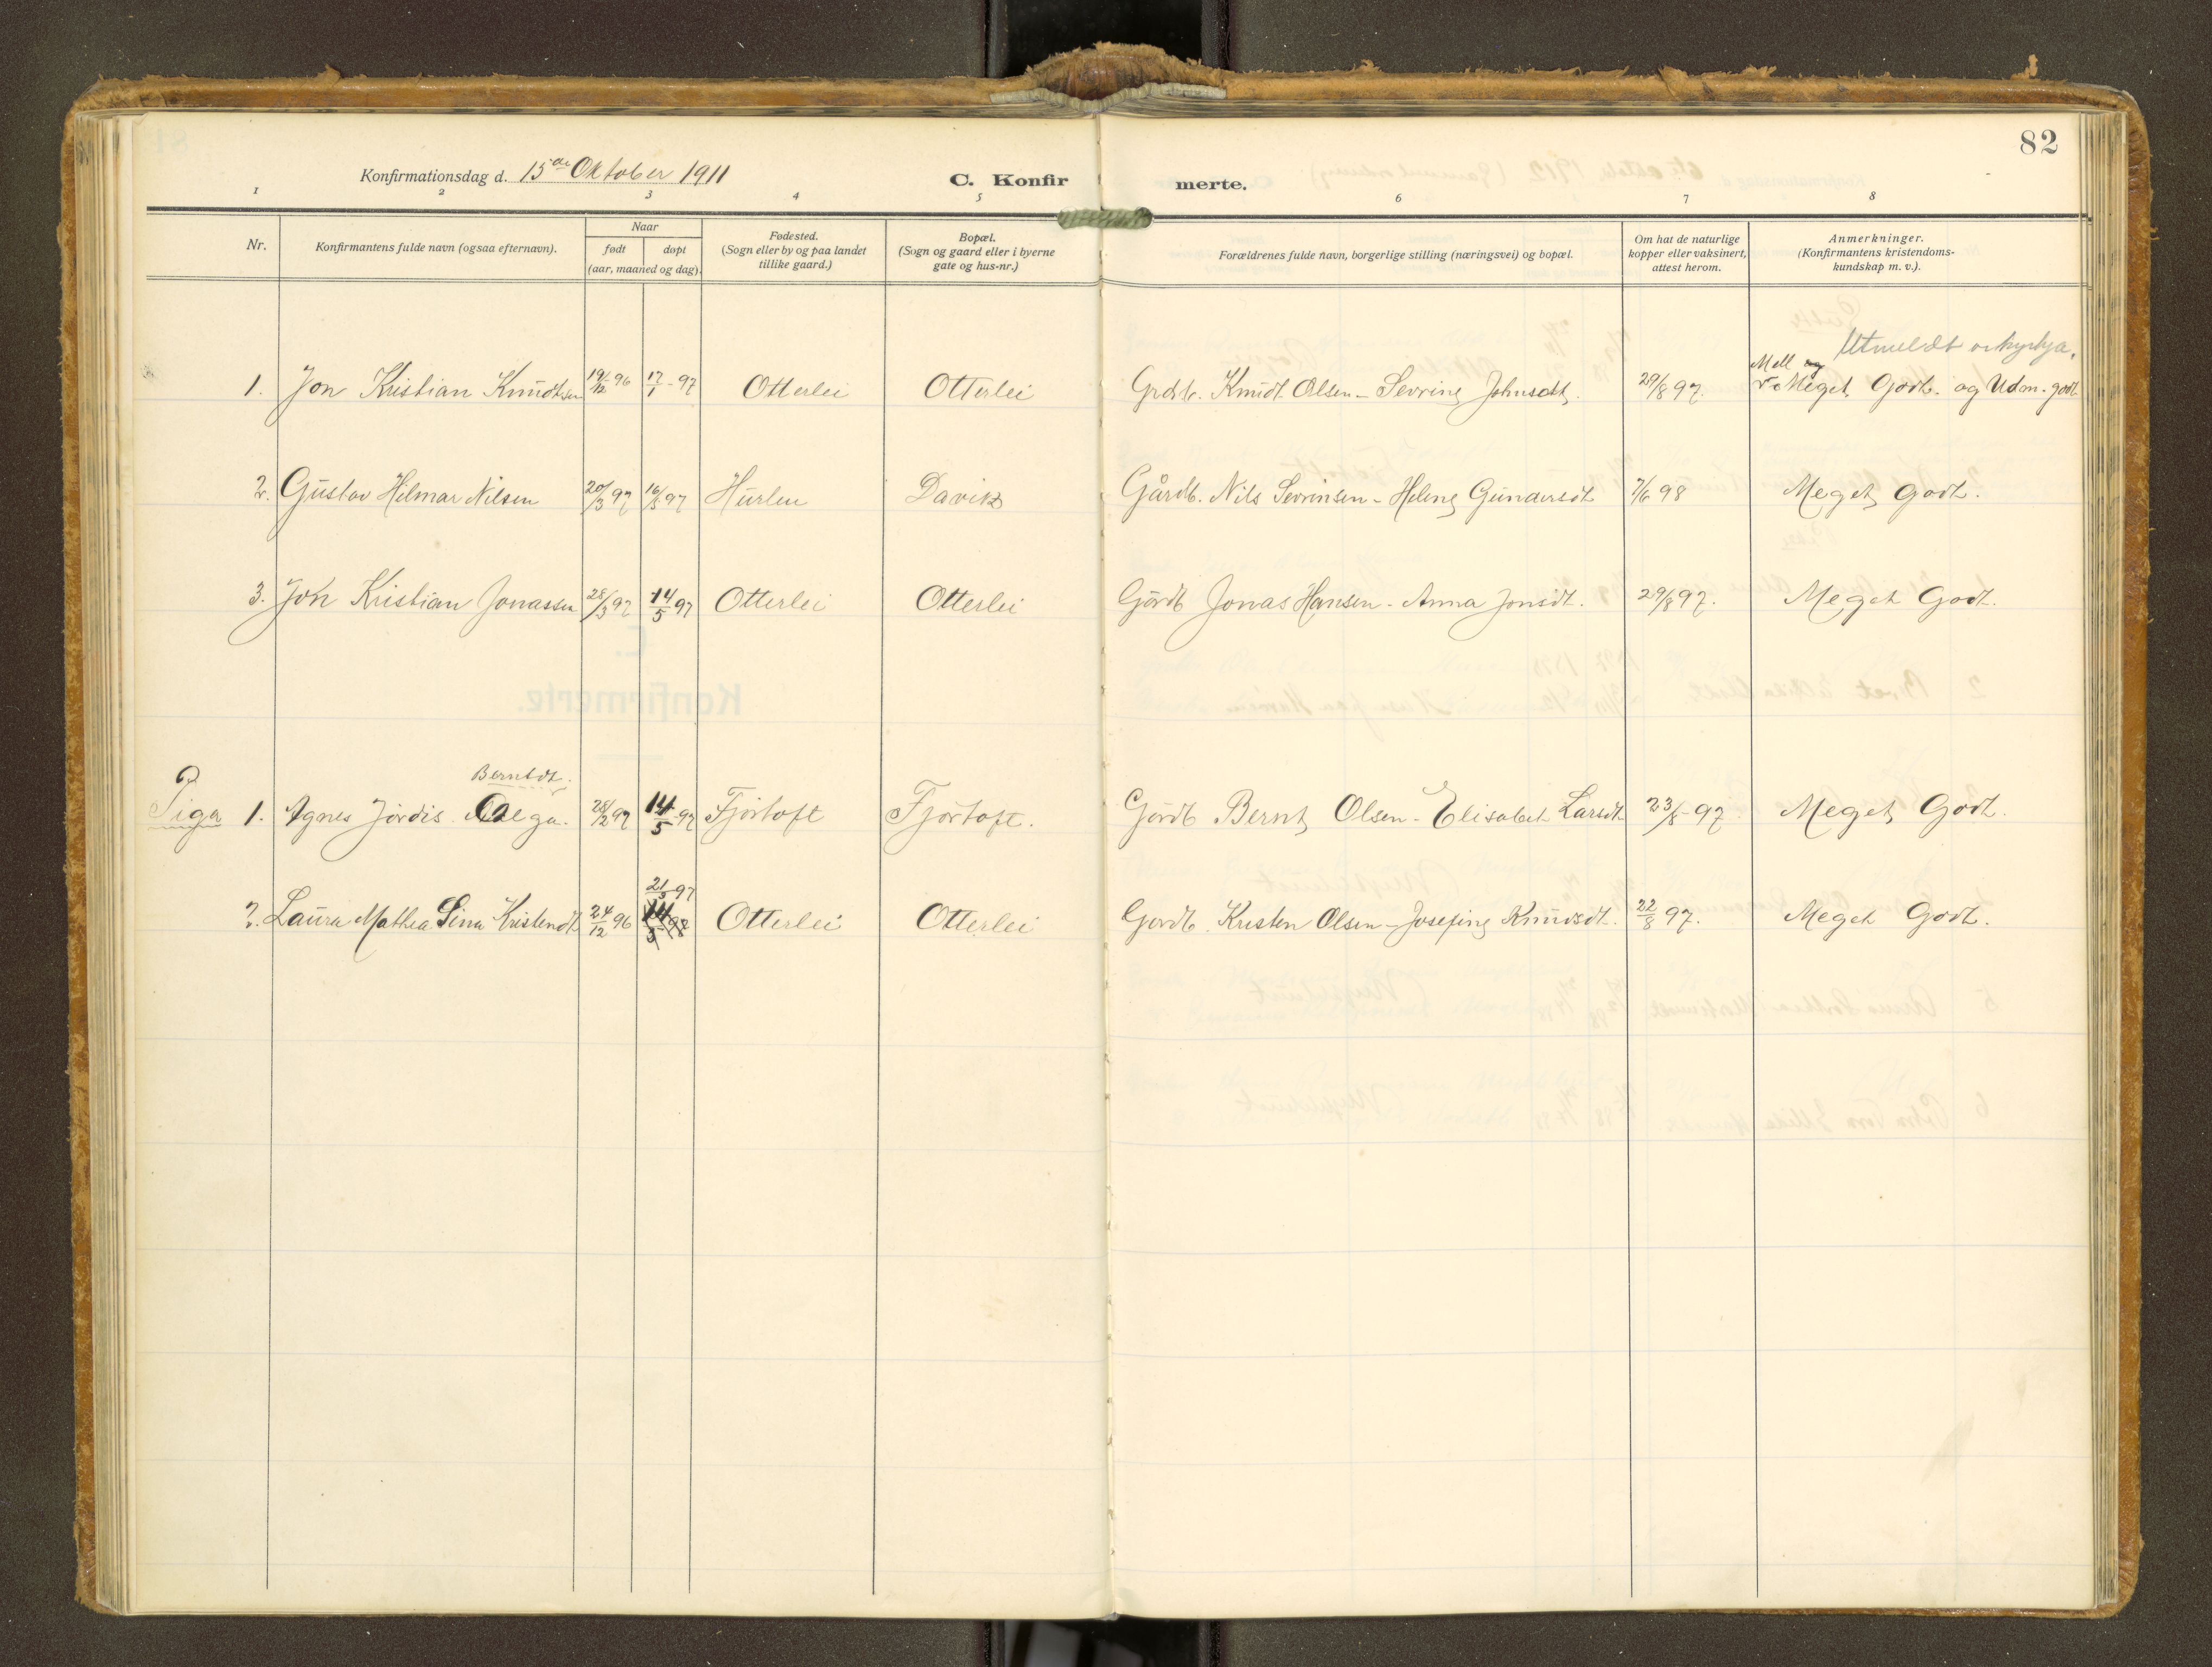 82
Konfirmationsdag d. 15de Oktober 1911
C. Konfirmerte.
1 2 3 4 5 6 7 8
Nr.
Konfirmantens fulde navn (ogsaa efternavn).
Naar
født døpt
(aar, maaned og dag).
Fødested.
(Sogn eller by og paa landet
tillike gaard.)
Bopæl.
(Sogn og gaard eller i byerne
gate og hus-nr.)
Forældrenes fulde navn, borgerlige stilling (næringsvei) og bopæl.
Om hat de naturlige
kopper eller vaksinert,
attest herom.
Anmerkninger.
(Konfirmantens kristendoms-
kundskap m. v.).
Utmeldt av kyrkja.
Mell og
1. Jon Kristian Knudtsen 19/12 96 17/1 - 97 Otterlei Otterlei Grdb. Knudt Olsen - Sevrine Johnsdt. 29/8 97. Meget Godt. og Udm. godt
2. Gustav Hilmar Nilsen 20/3 97 16/5 97 Hurlen Davik Gårdb. Nils Sevrinsen - Helene Gundersdt 7/6 98 Meget godt.
3. Jon Kristian Jonassen 28/3 97 14/5 97 Otterlei Otterlei Gårdb Jonas Hansen - Anna Jonsdt. 29/8 97. Meget Godt.
Berntdt.
Piga 1. Agnes Jørdis Olega. 28/2 97 14/5 - 97 Fjørtoft Fjørtoft. Gårdb Bernt Olsen - Elisabet Larsdt 23/8 - 97 Meget Godt.
21/3 97
2. Laura Mathea Lina Kristendt 24/12 96 14/3 98 Otterlei Otterlei Gårdb. Kristen Olsen - Josefine Knudsdt. 22/8 97. Meget Godt.